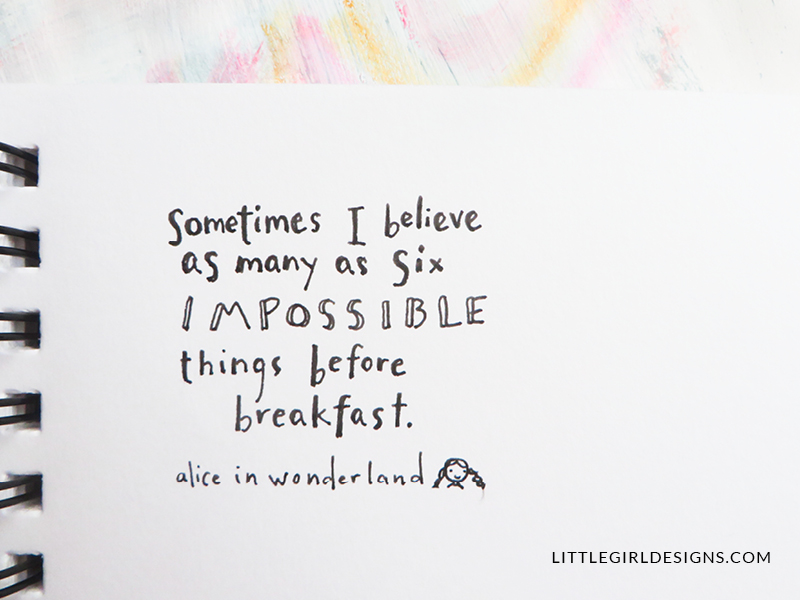 Sometimes I believe
as many as six
IMPOSSIBLE
things before
breakfast.
alice in wonderland
LITTLEGIRLDESIGNS.COM